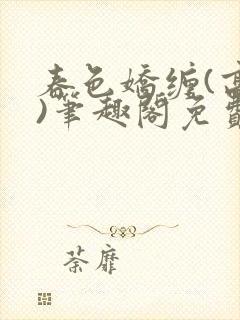 春色嬌纏(
)筆趣閣免費
荼靡